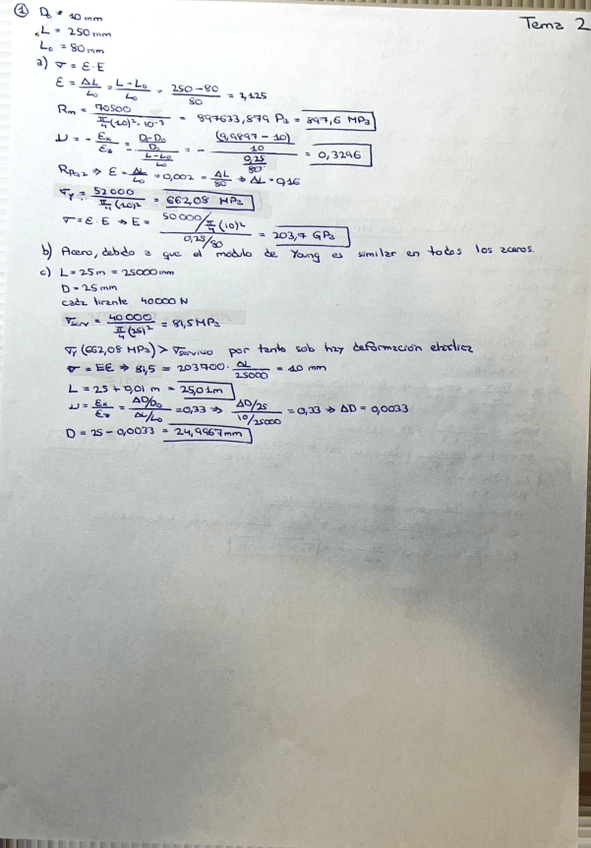 Tema 2
① D₀ = 10 mm
L = 250 mm
L₀ = 80 mm
a) σ = ε·E
ε = ΔL/L₀ = L-L₀/L₀ = 250-80/80 = 2,125
Rm = 70500/(π/4 (10)²·10⁻³) = 897633,879 Pa = 897,6 MPa
ν = - εx/εz = (D-D₀/D₀)/(L-L₀/L₀) = - ((9,9897-10)/10)/(0,25/80) = 0,3296
Rp0,2 ⇒ ε = ΔL/L₀ = 0,002 = ΔL/80 ⇒ ΔL = 0,16
σy = 52000/(π/4 (10)²) = 662,08 MPa
σ = ε·E ⇒ E = (50.000/(π/4 (10)²))/(0,25/80) = 203,7 GPa
b) Acero, debido a que el modulo de Young es similar en todos los aceros.
c) L = 25 m = 25000 mm
D = 25 mm
cada tirante 40000 N
σserv = 40000/(π/4 (25)²) = 81,5 MPa
σy (662,08 MPa) > σservicio por tanto solo hay deformación elastica
σ = Eε ⇒ 81,5 = 203700 · ΔL/25000 = 10 mm
L = 25 + 0,01 m = 25,01 m
ν = εx/εz = (ΔD/D₀)/(ΔL/L₀) = 0,33 ⇒ (ΔD/25)/(10/25000) = 0,33 ⇒ ΔD = 0,0033
D = 25 - 0,0033 = 24,9967 mm